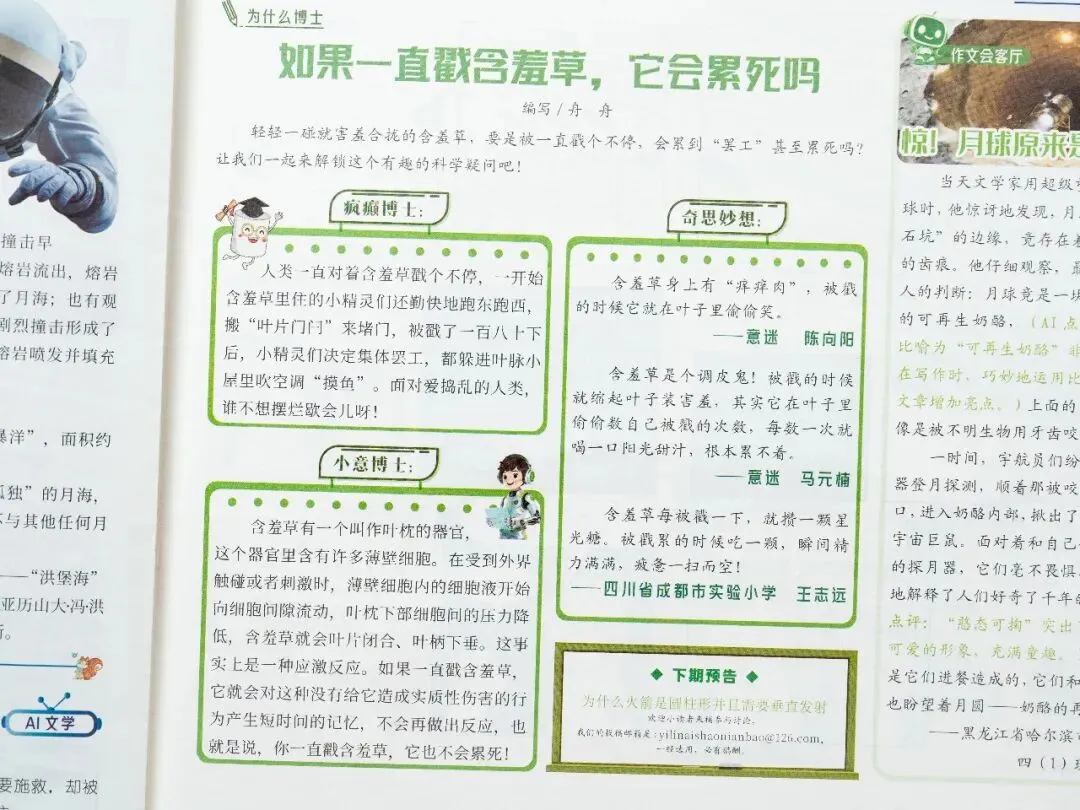 撞击早
熔岩流出，熔岩
了月海；也有观
剧烈撞击形成了
熔岩喷发并填充
暴洋”，面积约
孤独”的月海，
不与其他任何月
——“洪堡海”
亚历山大·冯·洪
AI 文学
要施救，却被
为什么博士
如果一直戳含羞草，它会累死吗
编写/舟 舟
轻轻一碰就害羞合拢的含羞草，要是被一直戳个不停，会累到“罢工”甚至累死吗？
让我们一起来解锁这个有趣的科学疑问吧！
疯癫博士：
人类一直对着含羞草戳个不停，一开始
含羞草里住的小精灵们还勤快地跑东跑西，
搬“叶片门闩”来堵门，被戳了一百八十下
后，小精灵们决定集体罢工，都躲进叶脉小
屋里吹空调“摸鱼”。面对爱捣乱的人类，
谁不想摆烂歇会儿呀！
小意博士：
含羞草有一个叫作叶枕的器官，
这个器官里含有许多薄壁细胞。在受到外界
触碰或者刺激时，薄壁细胞内的细胞液开始
向细胞间隙流动，叶枕下部细胞间的压力降
低，含羞草就会叶片闭合、叶柄下垂。这事
实上是一种应激反应。如果一直戳含羞草，
它就会对这种没有给它造成实质性伤害的行
为产生短时间的记忆，不会再做出反应，也
就是说，你一直戳含羞草，它也不会累死！
奇思妙想：
含羞草身上有“痒痒肉”，被戳
的时候它就在叶子里偷偷笑。
——意迷 陈向阳
含羞草是个调皮鬼！被戳的时候
就缩起叶子装害羞，其实它在叶子里
偷偷数自己被戳的次数，每数一次就
喝一口阳光甜汁，根本累不着。
——意迷 马元楠
含羞草每被戳一下，就攒一颗星
光糖。被戳累的时候吃一颗，瞬间精
力满满，疲惫一扫而空！
——四川省成都市实验小学 王志远
◆ 下期预告 ◆
为什么火箭是圆柱形并且需要垂直发射
欢迎小读者来稿参与讨论。
我们的投稿邮箱是：yilinaishaonianbao@126.com，
一经选用，必有稿酬。
作文会客厅
惊！月球原来是
当天文学家用超级
球时，他惊讶地发现，月
石坑”的边缘，竟存在着
的齿痕。他仔细观察，
人的判断：月球竟是一块
的可再生奶酪，（AI 点
比喻为“可再生奶酪”非
在写作时，巧妙地运用比
文章增加亮点。）上面的
像是被不明生物用牙齿咬
一时间，宇航员们纷
器登月探测，顺着那被咬
口，进入奶酪内部，揪出了
宇宙巨鼠。面对着和自己
的探月器，它们毫不畏惧
地解释了人们好奇了千年的
点评：“憨态可掬”突出
可爱的形象，充满童趣。
是它们进餐造成的，它们和
也盼望着月圆——奶酪的再
——黑龙江省哈尔滨市
四（1）班